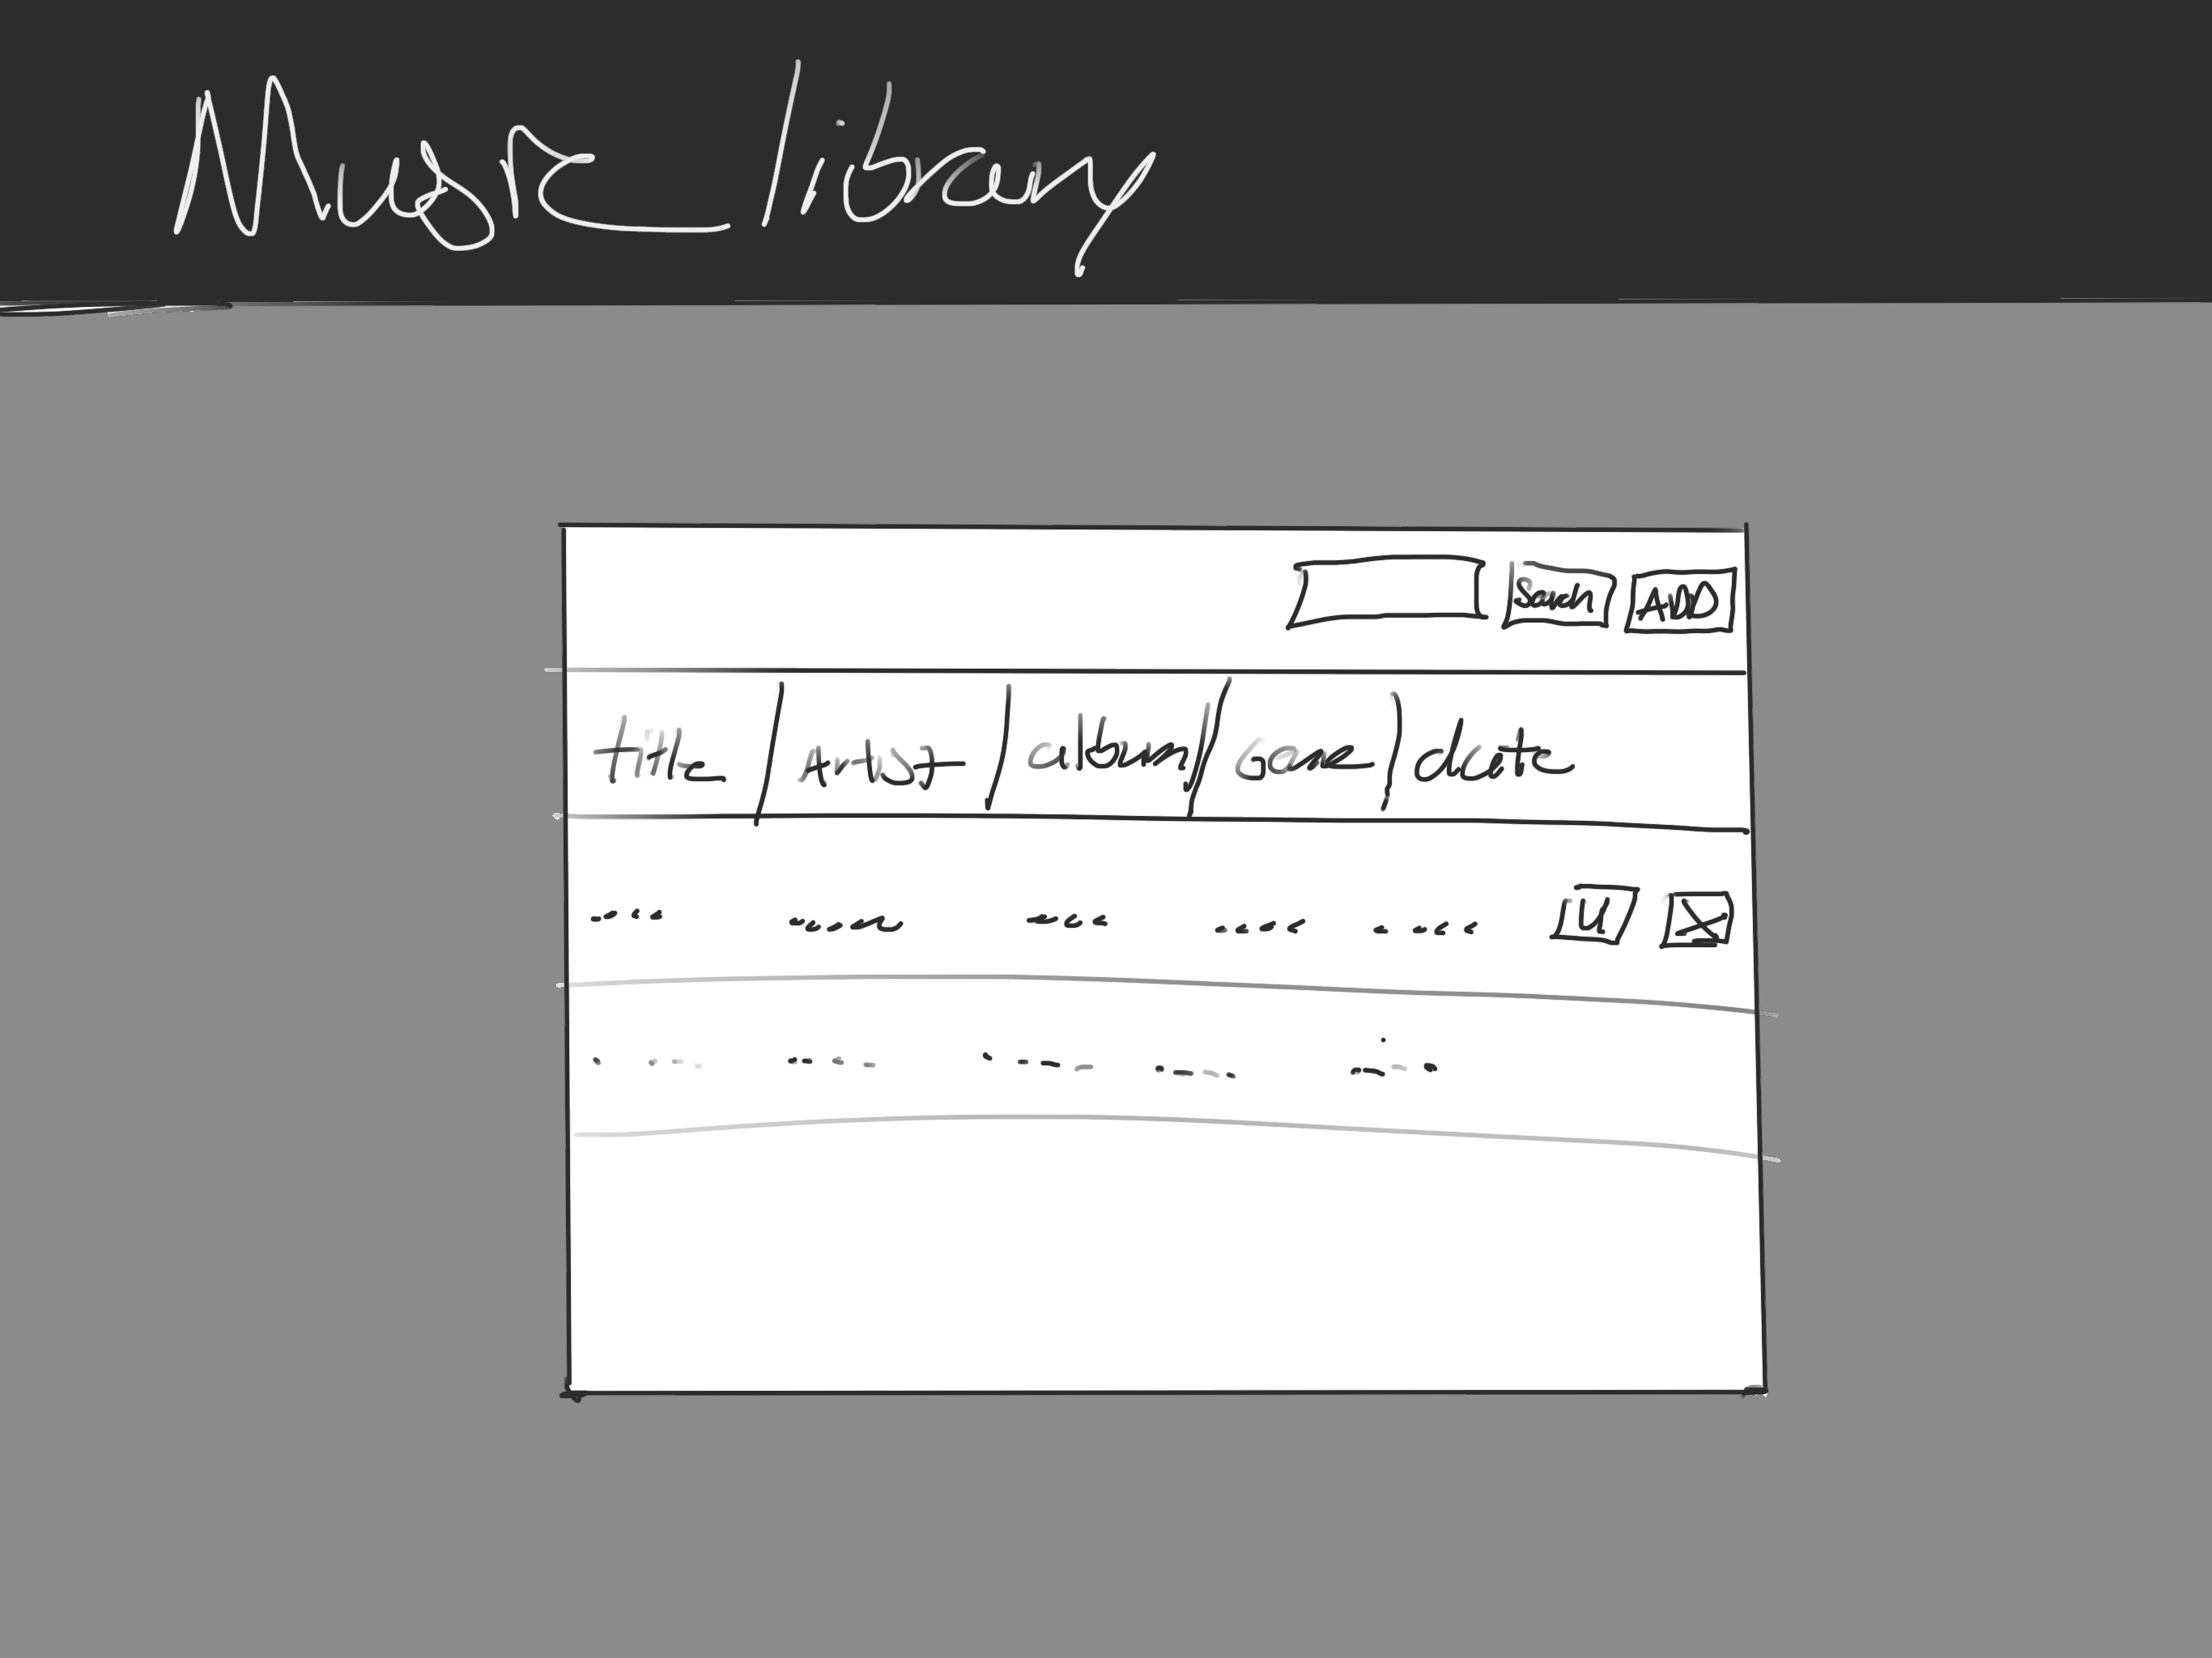 Music library
Search ADD
title artist album Genre date
U X